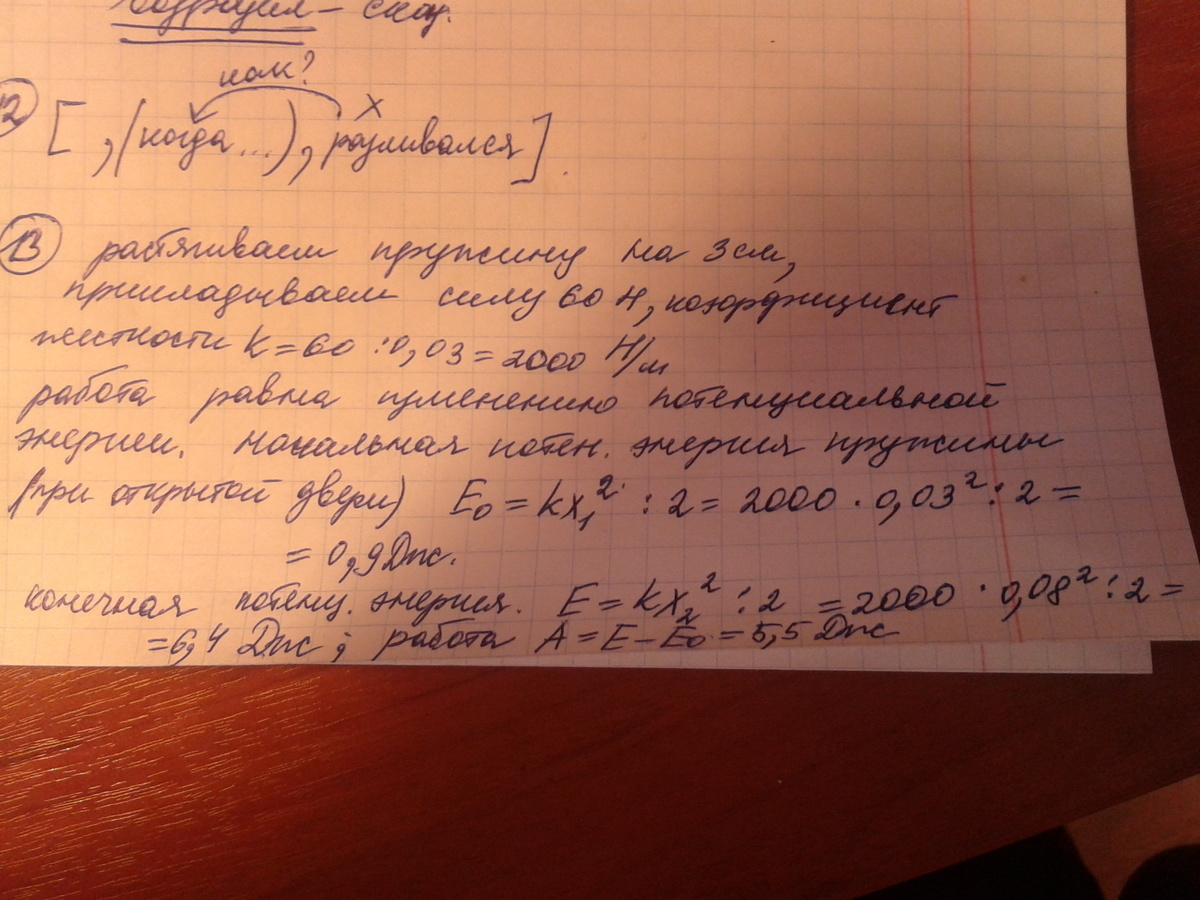 – сказ.
12
как?
х
[ , (когда ...), разливался].
13 растягиваем пружину на 3 см,
прикладываем силу 60 Н, коэффициент
жесткости k = 60 : 0,03 = 2000 Н/м
работа равна изменению потенциальной
энергии. Начальная потен. энергия пружины
(при открытой двери) E₀ = kx₁² : 2 = 2000 · 0,03² : 2 =
= 0,9 Дж.
конечная потенц. энергия. E = kx₂² : 2 = 2000 · 0,08² : 2 =
= 6,4 Дж ; работа A = E – E₀ = 5,5 Дж